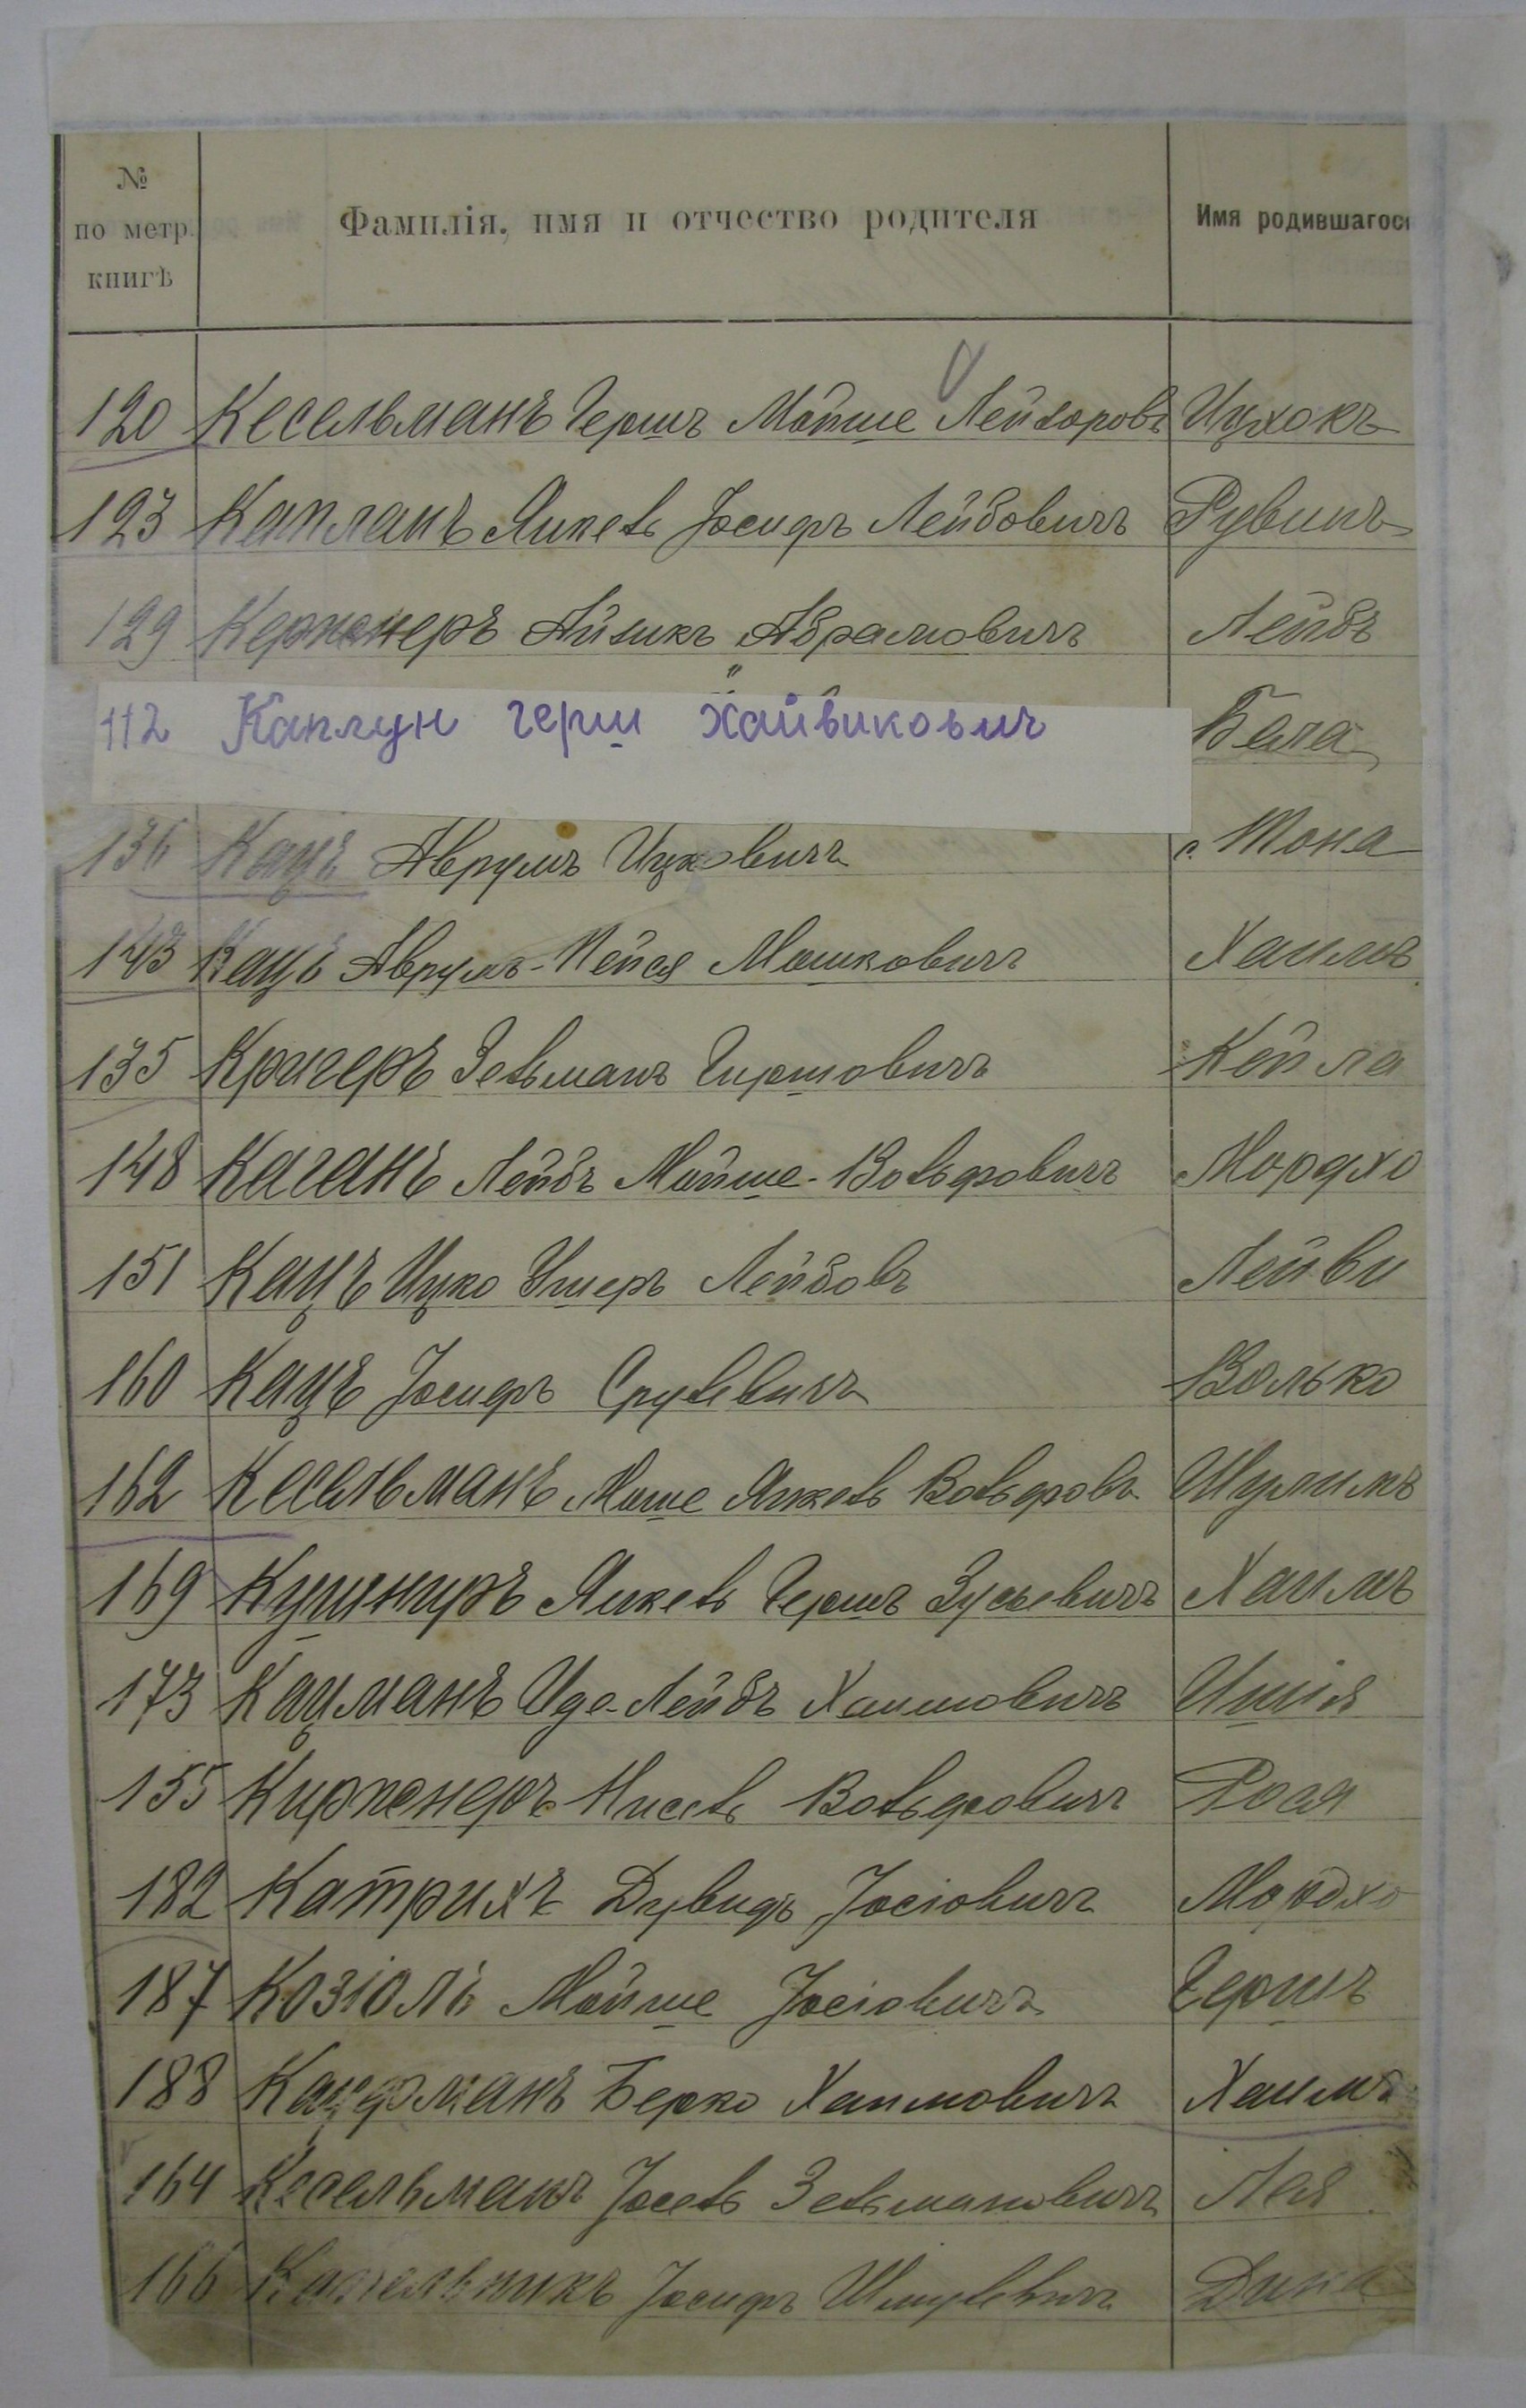 № по метр. книгѣ Фамилія, имя и отчество родителя Имя родившагося
120 Кесельманъ Гершъ Мойше Лейзоровъ Ицхокъ
123 Капланъ Янкель Іосифъ Лейбовичъ Рувинъ
129 Керженеръ Айзикъ Абрамовичъ Лейбъ
112 Каплун Герш Хайвикович Бела
136 Кацъ Аврумъ Ицковичъ Тона
143 Кацъ Аврумъ-Пейся Мошковичъ Хаимъ
135 Кригеръ Зельманъ Гиршовичъ Кейла
148 Каганъ Лейбъ Мойше-Вольфовичъ Мордхо
151 Кацъ Ицко Ушеръ Лейбовъ Лейви
160 Кацъ Іосифъ Срулевичъ Волько
162 Кесельманъ Моше Янкель Вольфовъ Шулимъ
169 Кушниръ Янкель Гершъ Зусьевичъ Хаимъ
173 Кацманъ Иде-Лейбъ Хаимовичъ Ишія
155 Кирженеръ Нисель Вольфовичъ Рося
182 Катрихъ Дувидъ Іосіовичъ Мордхо
187 Козіолъ Мойше Іосіовичъ Гершъ
188 Берко Хаимовичъ Хаимъ
164 Кесельманъ Іосель Зельмановичъ Лея
166 Іосифъ Шмулевичъ Дина